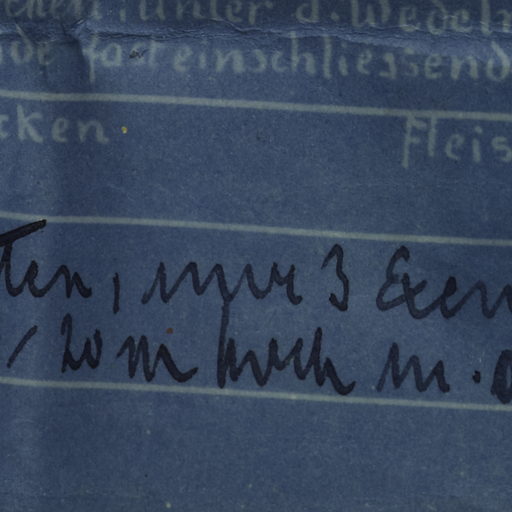 chen, unter d. Wedeln
nde fast einschliessend
cken Fleis
ten, nur 3 Exem
/ 20 m hoch m.